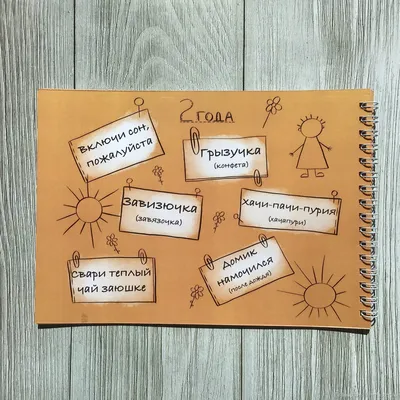 2 ГОДА
Включи сон,
пожалуйста
Грызучка
(конфета)
Завизючка
(завязочка)
Хачи-пачи-пурия
(хачапури)
Свари теплый
чай заюшке
Домик
намочился
(после дождя)